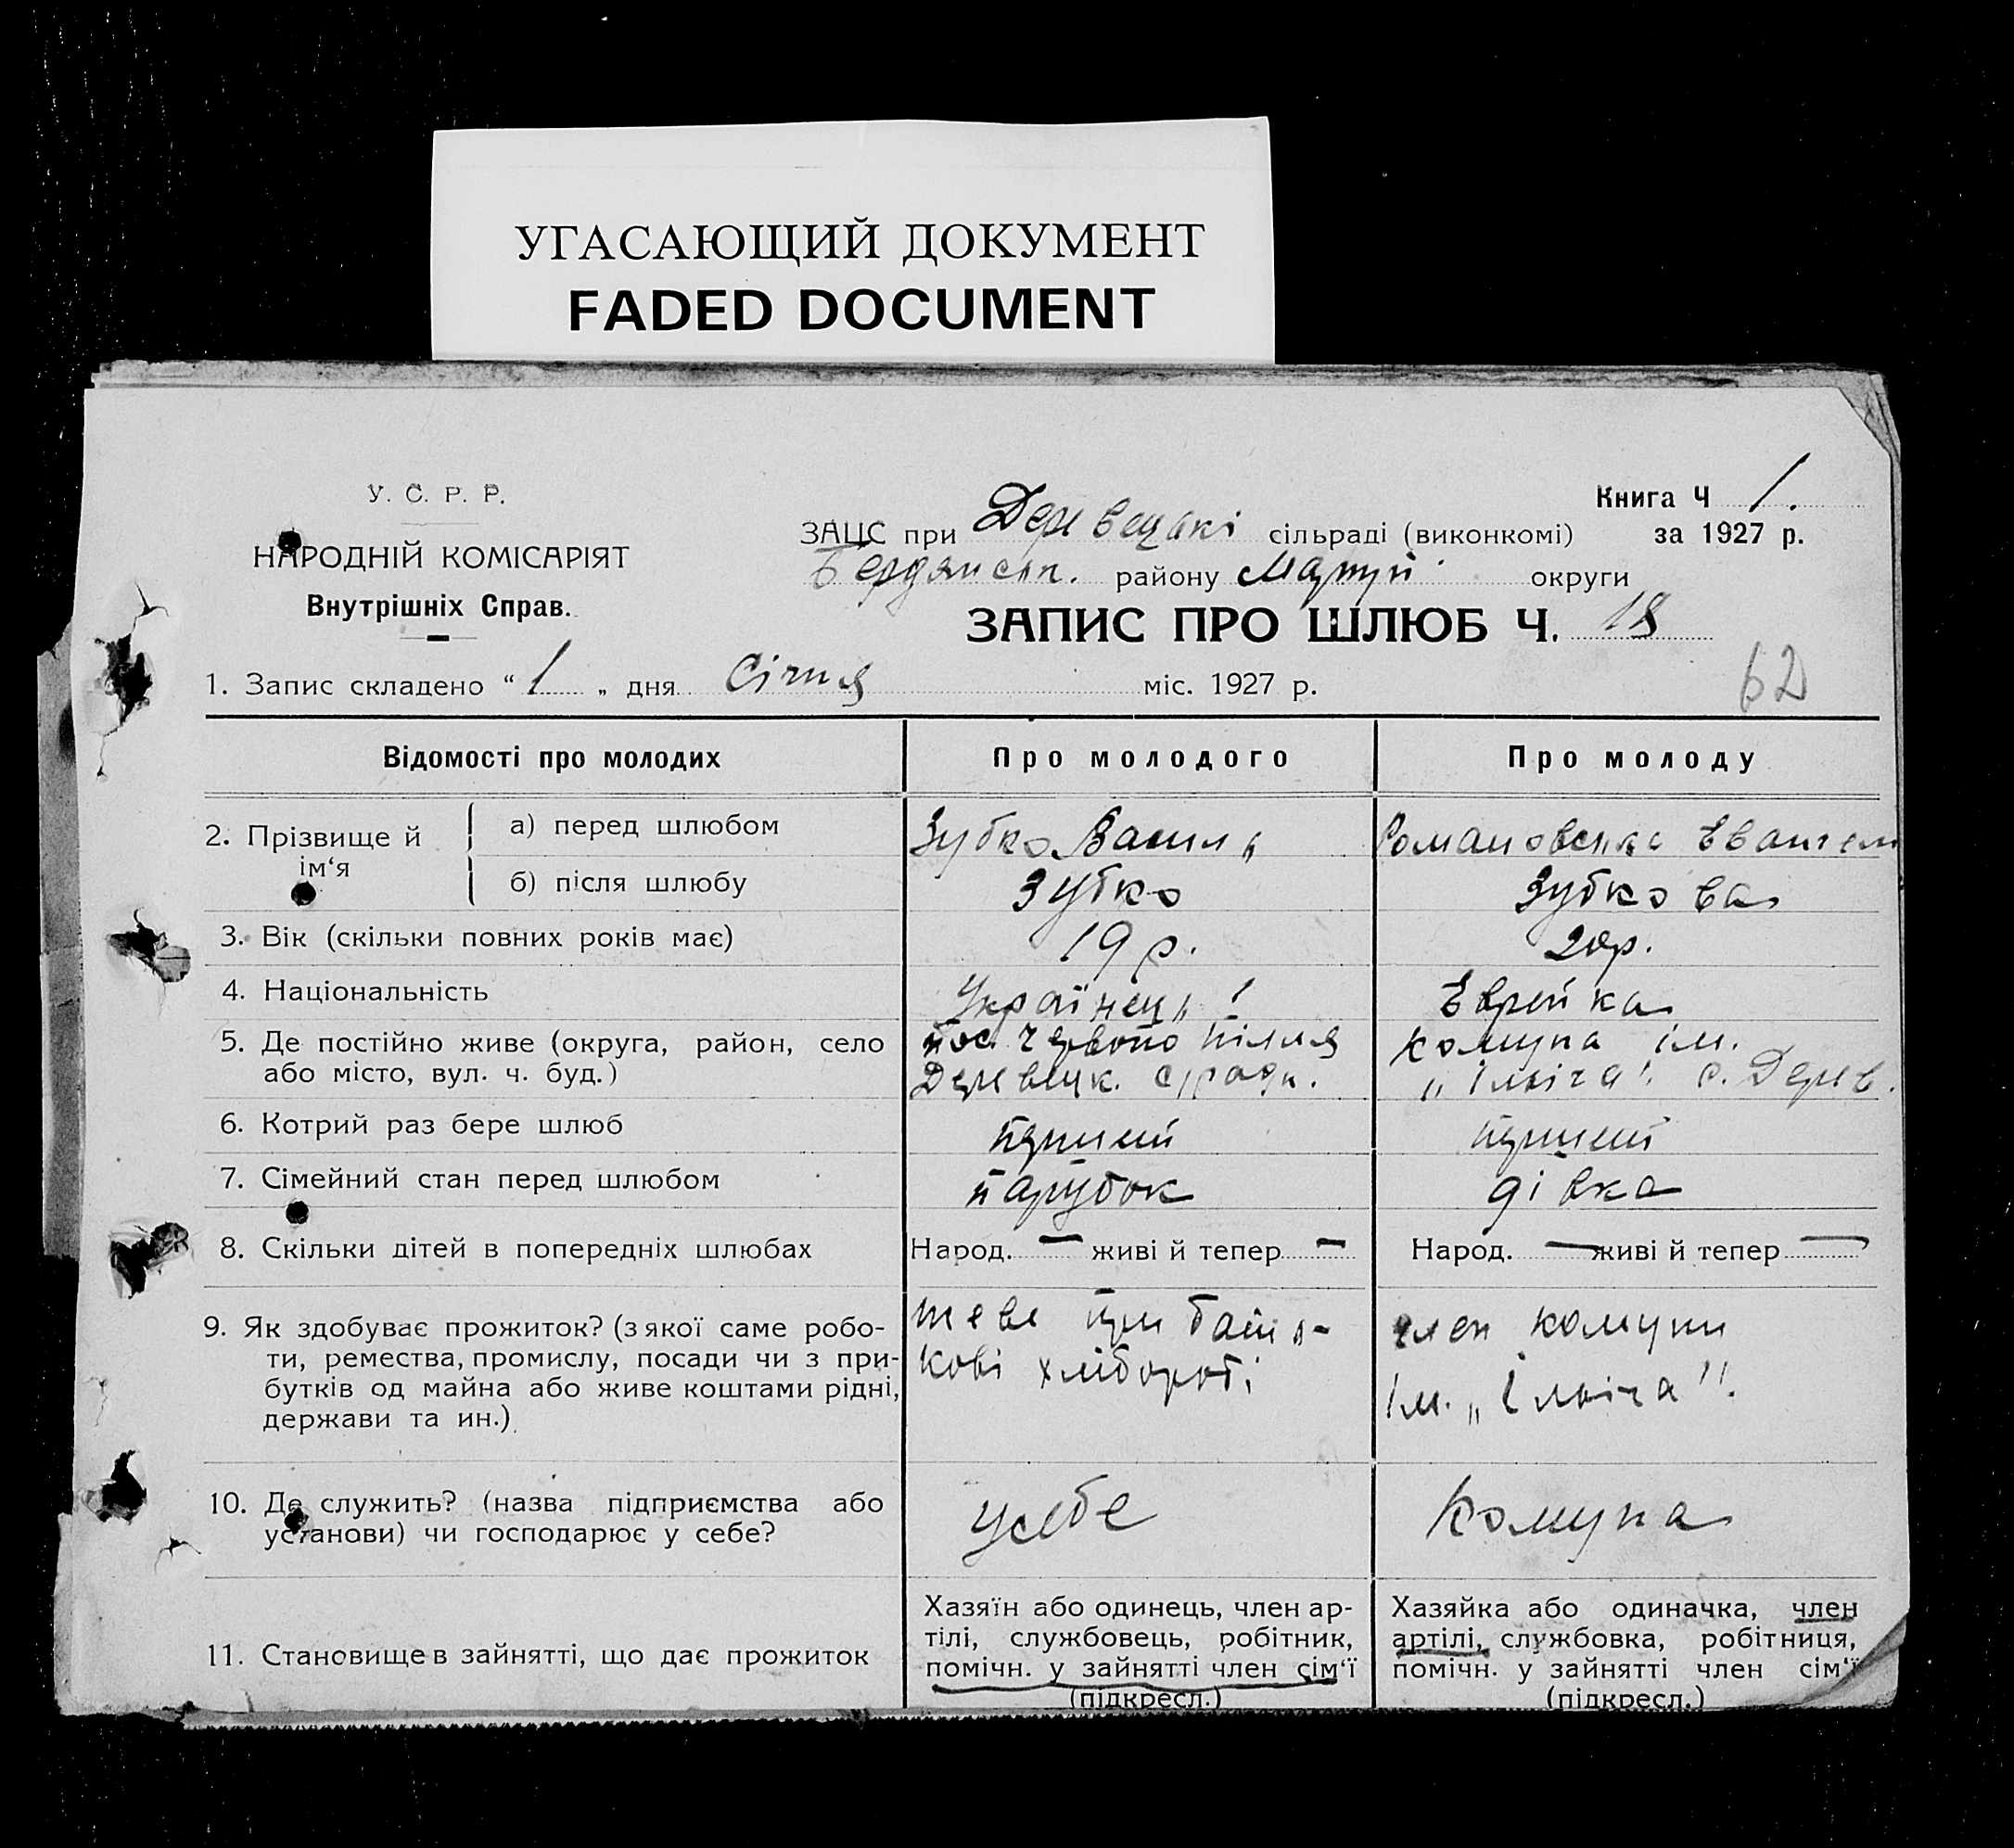 УГАСАЮЩИЙ ДОКУМЕНТ
FADED DOCUMENT
У. С. Р. Р.
НАРОДНІЙ КОМІСАРІЯТ
Внутрішніх Справ.
Книга Ч 1.
за 1927 р.
ЗАЦС при Деревецькі сільраді (виконкомі)
Бердянськ. району Маріуп. округи
ЗАПИС ПРО ШЛЮБ Ч. 18
1. Запис складено “ 1 „ дня Січня міс. 1927 р.
62
Відомості про молодих
Про молодого
Про молоду
2. Прізвище й ім‘я
а) перед шлюбом
Зубко Василь
Романовська Євангел
б) після шлюбу
Зубко
Зубкова
3. Вік (скільки повних років має)
19 р.
20 р.
4. Національність
Українець
Єврейка
5. Де постійно живе (округа, район, село
або місто, вул. ч. буд.)
пос. Червоно Пілля
Деревецк. с/ради.
Комуна ім.
„Ілліча". с. Дерев.
6. Котрий раз бере шлюб
перший
перший
7. Сімейний стан перед шлюбом
парубок
дівка
8. Скільки дітей в попередніх шлюбах
Народ. — живі й тепер —
Народ. — живі й тепер —
9. Як здобуває прожиток? (з якої саме робо-
ти, ремества, промислу, посади чи з при-
бутків од майна або живе коштами рідні,
держави та ин.)
живе при бать-
кові хліборобі
член комуни
ім. „Ілліча".
10. Де служить? (назва підприємства або
установи) чи господарює у себе?
у себе
Комуна
11. Становище в зайнятті, що дає прожиток
Хазяїн або одинець, член ар-
тілі, службовець, робітник,
помічн. у зайнятті член сім‘ї
(підкресл.)
Хазяйка або одиначка, член
артілі, службовка, робітниця,
помічн. у зайнятті член сім‘ї
(підкресл.)